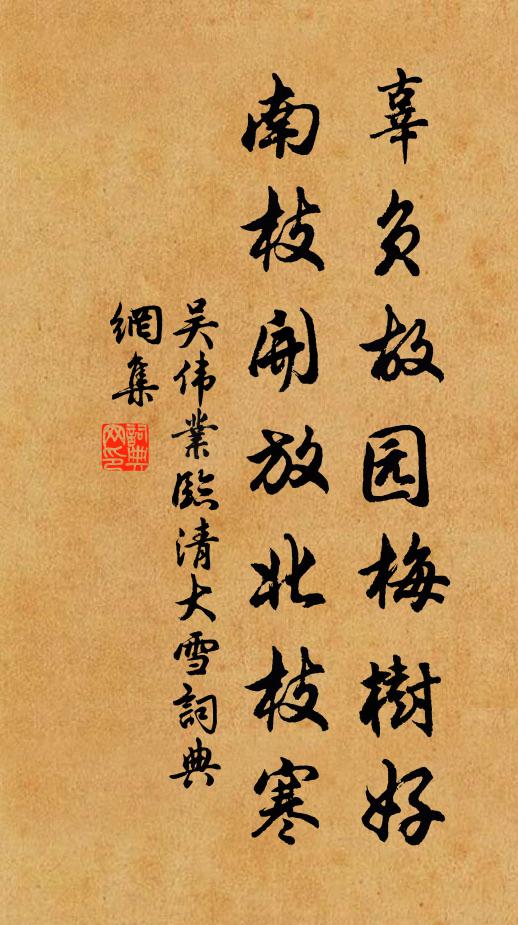 辜负故园梅樹好
南枝開放北枝寒
吴伟業臨清大雪詞典
網集
詞典
网印